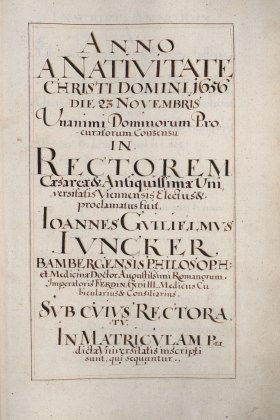 ANNO
A NATIVITATE
CHRISTI DOMINI, 1656
DIE 23 NOVEMBRIS
Unanimi Dominorum Pro
curatorum Consensu
IN
RECTOREM
Cæsareæ & Antiquissimæ Uni
versitatis Viennensis Electus &
proclamatus fuit,
IOANNES GUILIELMUS
IUNCKER
BAMBERGENSIS PHILOSOPH:
et Medicinæ Doctor Augustissimi Romanorum
Imperatoris FERDINANDI III. Medicus Cu
bicularius & Consiliarius.
SUB CUIUS RECTORA
TU.
IN MATRICULAM Præ
dictæ Universitatis inscripti
sunt, qui sequuntur.